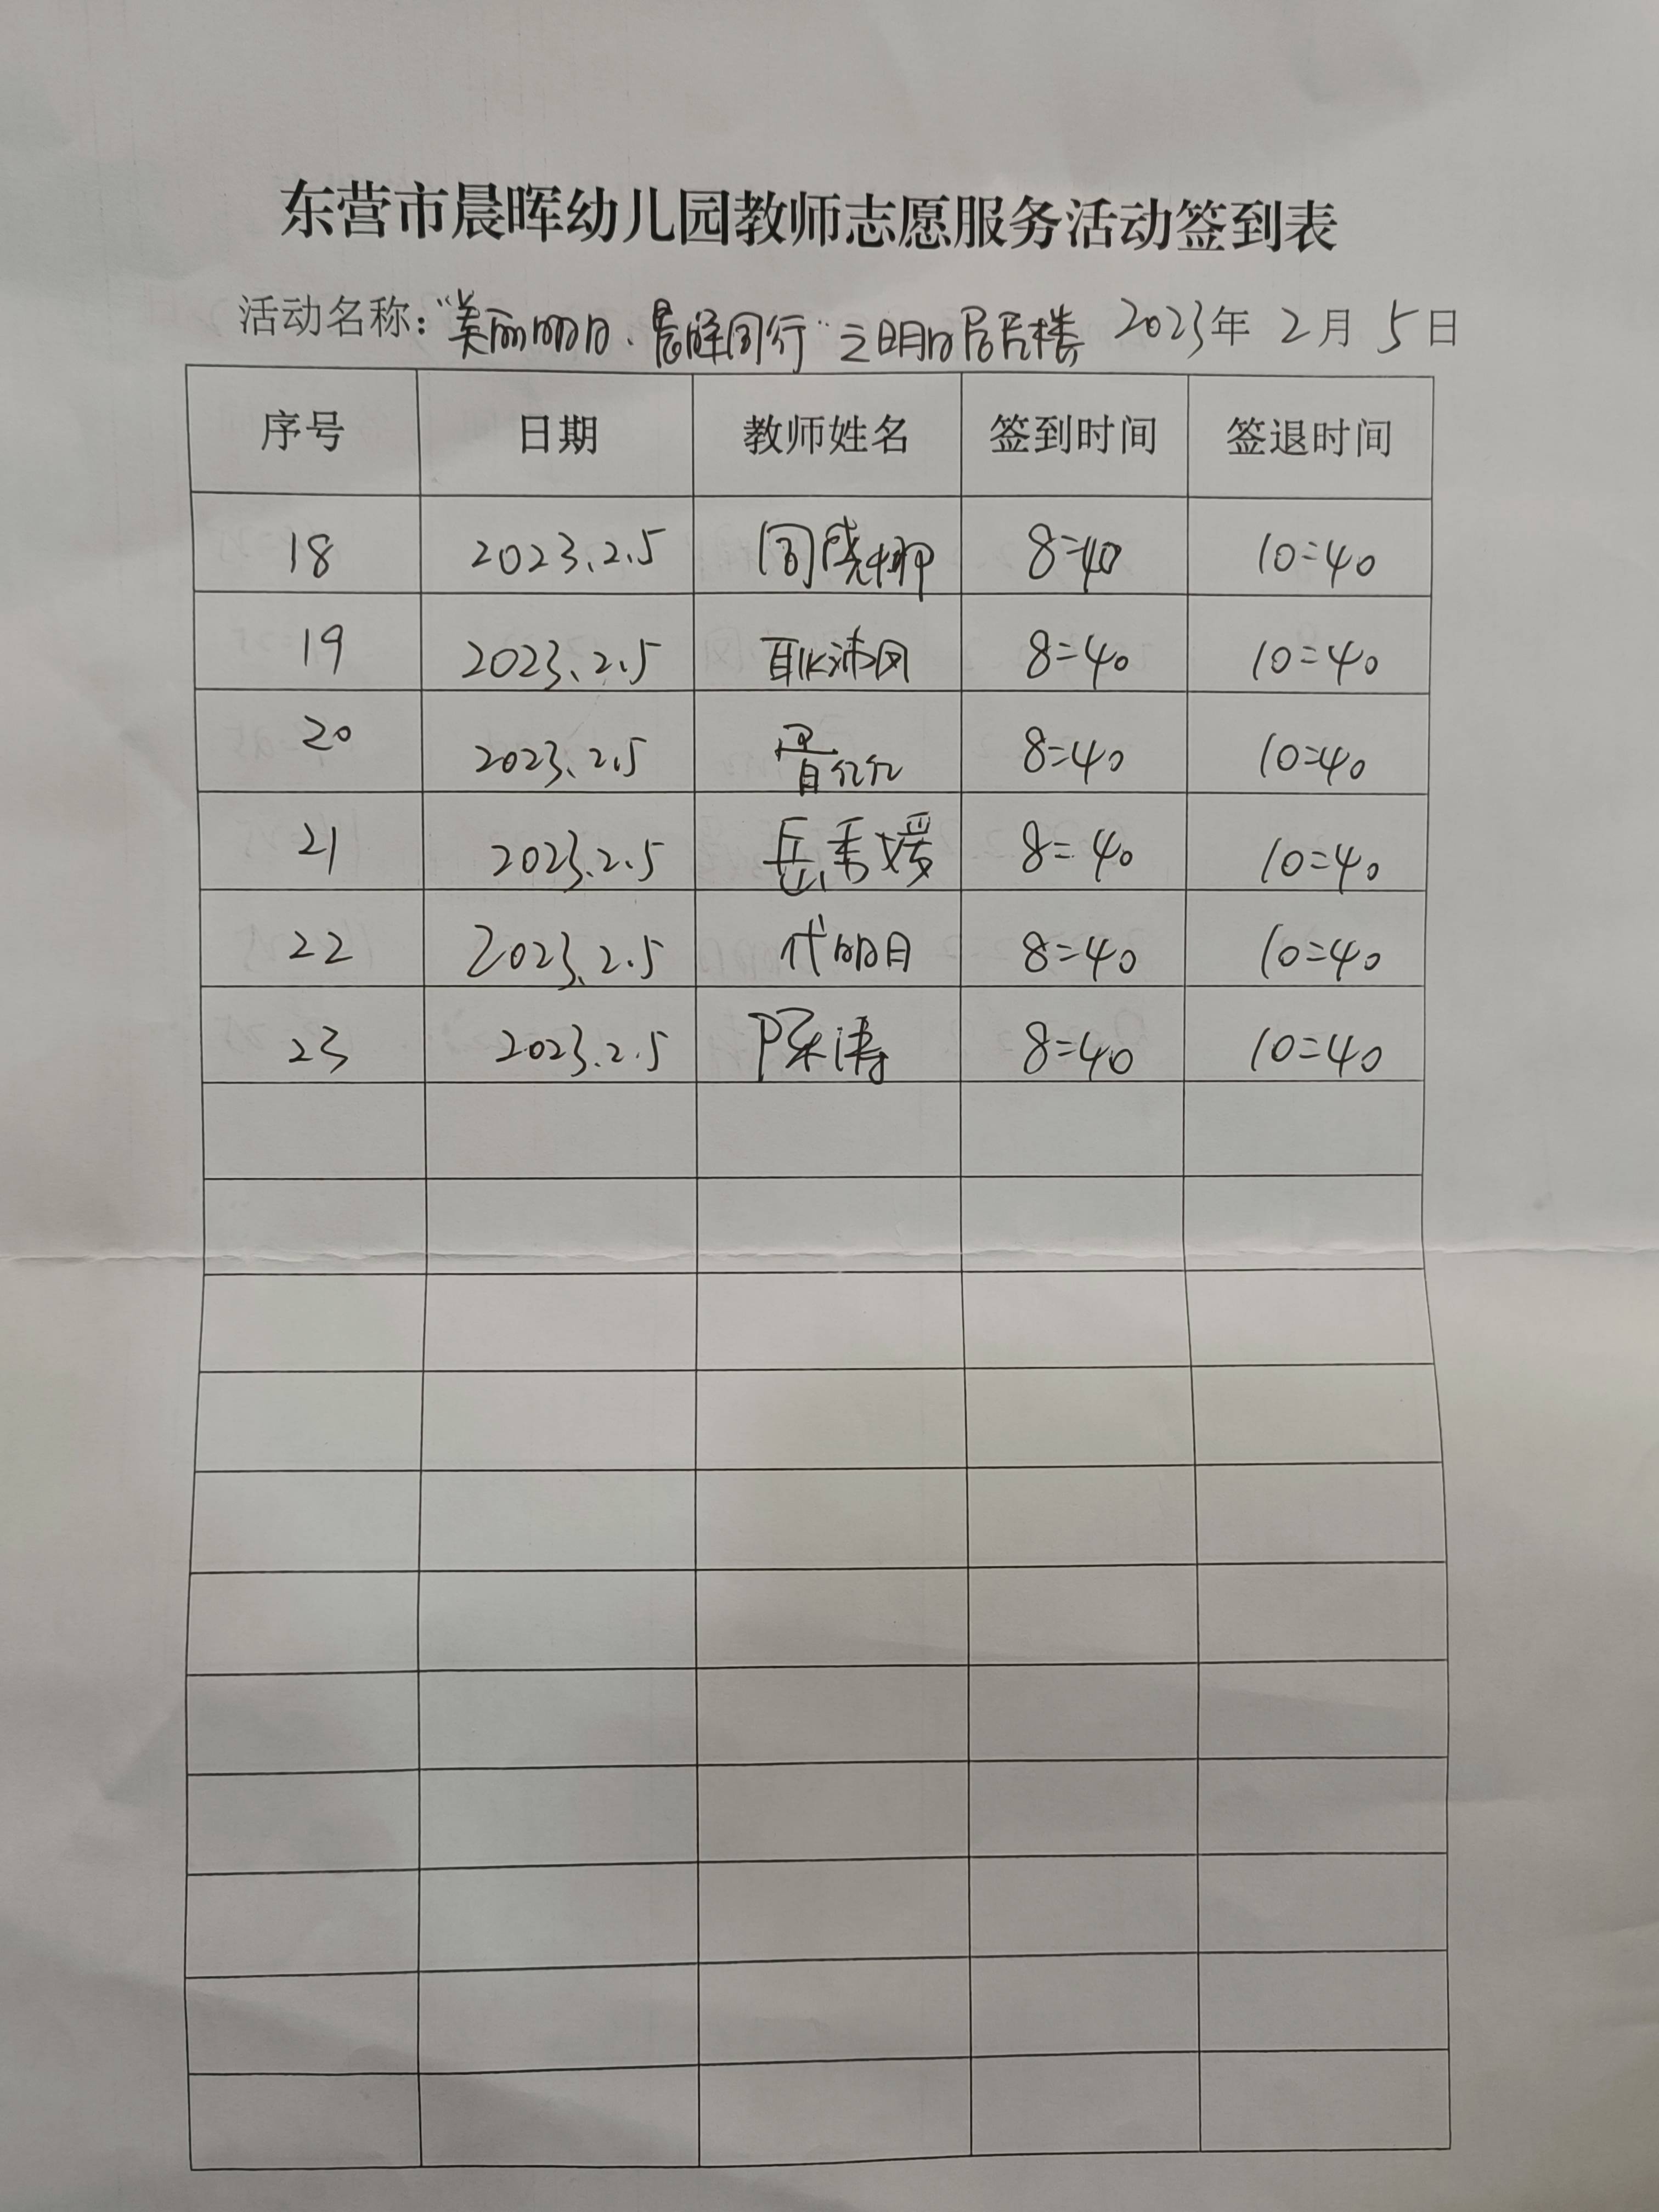 东营市晨晖幼儿园教师志愿服务活动签到表
活动名称：“美丽明日·晨晖同行”之明日居民楼 2023年 2月 5日
序号 日期 教师姓名 签到时间 签退时间
18 2023.2.5 8:40 10:40
19 2023.2.5 耿沛凤 8:40 10:40
20 2023.2.5 8:40 10:40
21 2023.2.5 岳秀媛 8:40 10:40
22 2023.2.5 代明月 8:40 10:40
23 2023.2.5 陈涛 8:40 10:40